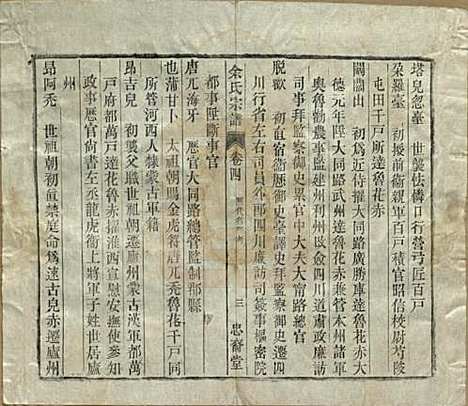 塔兒忽臺　世襲怯憐口行營弓匠百戶
朶羅臺　初授前衛親軍百戶積官昭信校尉芍陂
屯田千戶所達魯花赤
闊闊出　初爲近侍擢大同路廣勝庫達魯花赤至
德元年陞大同路武州達魯花赤兼管本州諸軍
奥魯勸農事監建州利州改僉四川道肅政廉訪
司事拜監察御史累官中大夫大甯路總管
脫歡　初直宿衛歷御史臺譯史拜監察御史遷四
川行省左右司員外郎四川廉訪司簽事樞密院
都事陞斷事官
余氏宗譜
卷四
三
忠裔堂
唐兀海牙　歷官大同路總管監制郡縣
也蒲甘卜　太祖朝賜金虎符唐兀禿魯花千戶同
所管河西人隸蒙古軍籍
昂吉兒　初襲父職世祖朝遷廬州蒙古漢軍都萬
戶府都萬戶達花魯赤擢淮西宣慰安撫使參知
政事歷官左丞龍虎衛上將軍子姓世居廬
州
昂阿禿　世祖朝初直禁庭命爲速古兒赤遷廬州